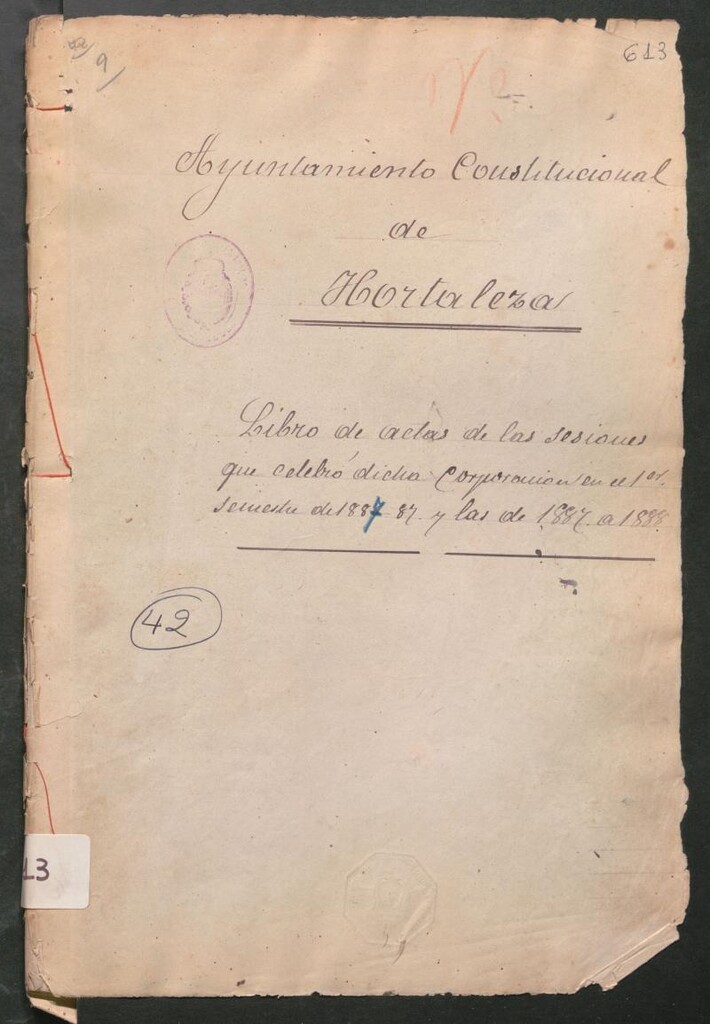 613
9
Ayuntamiento Constitucional
de
Hortaleza
Libro de actas de las sesiones
que celebró dicha Corporacion en el 1er.
semestre de 1887 87. y las de 1887. a 1888
42
13